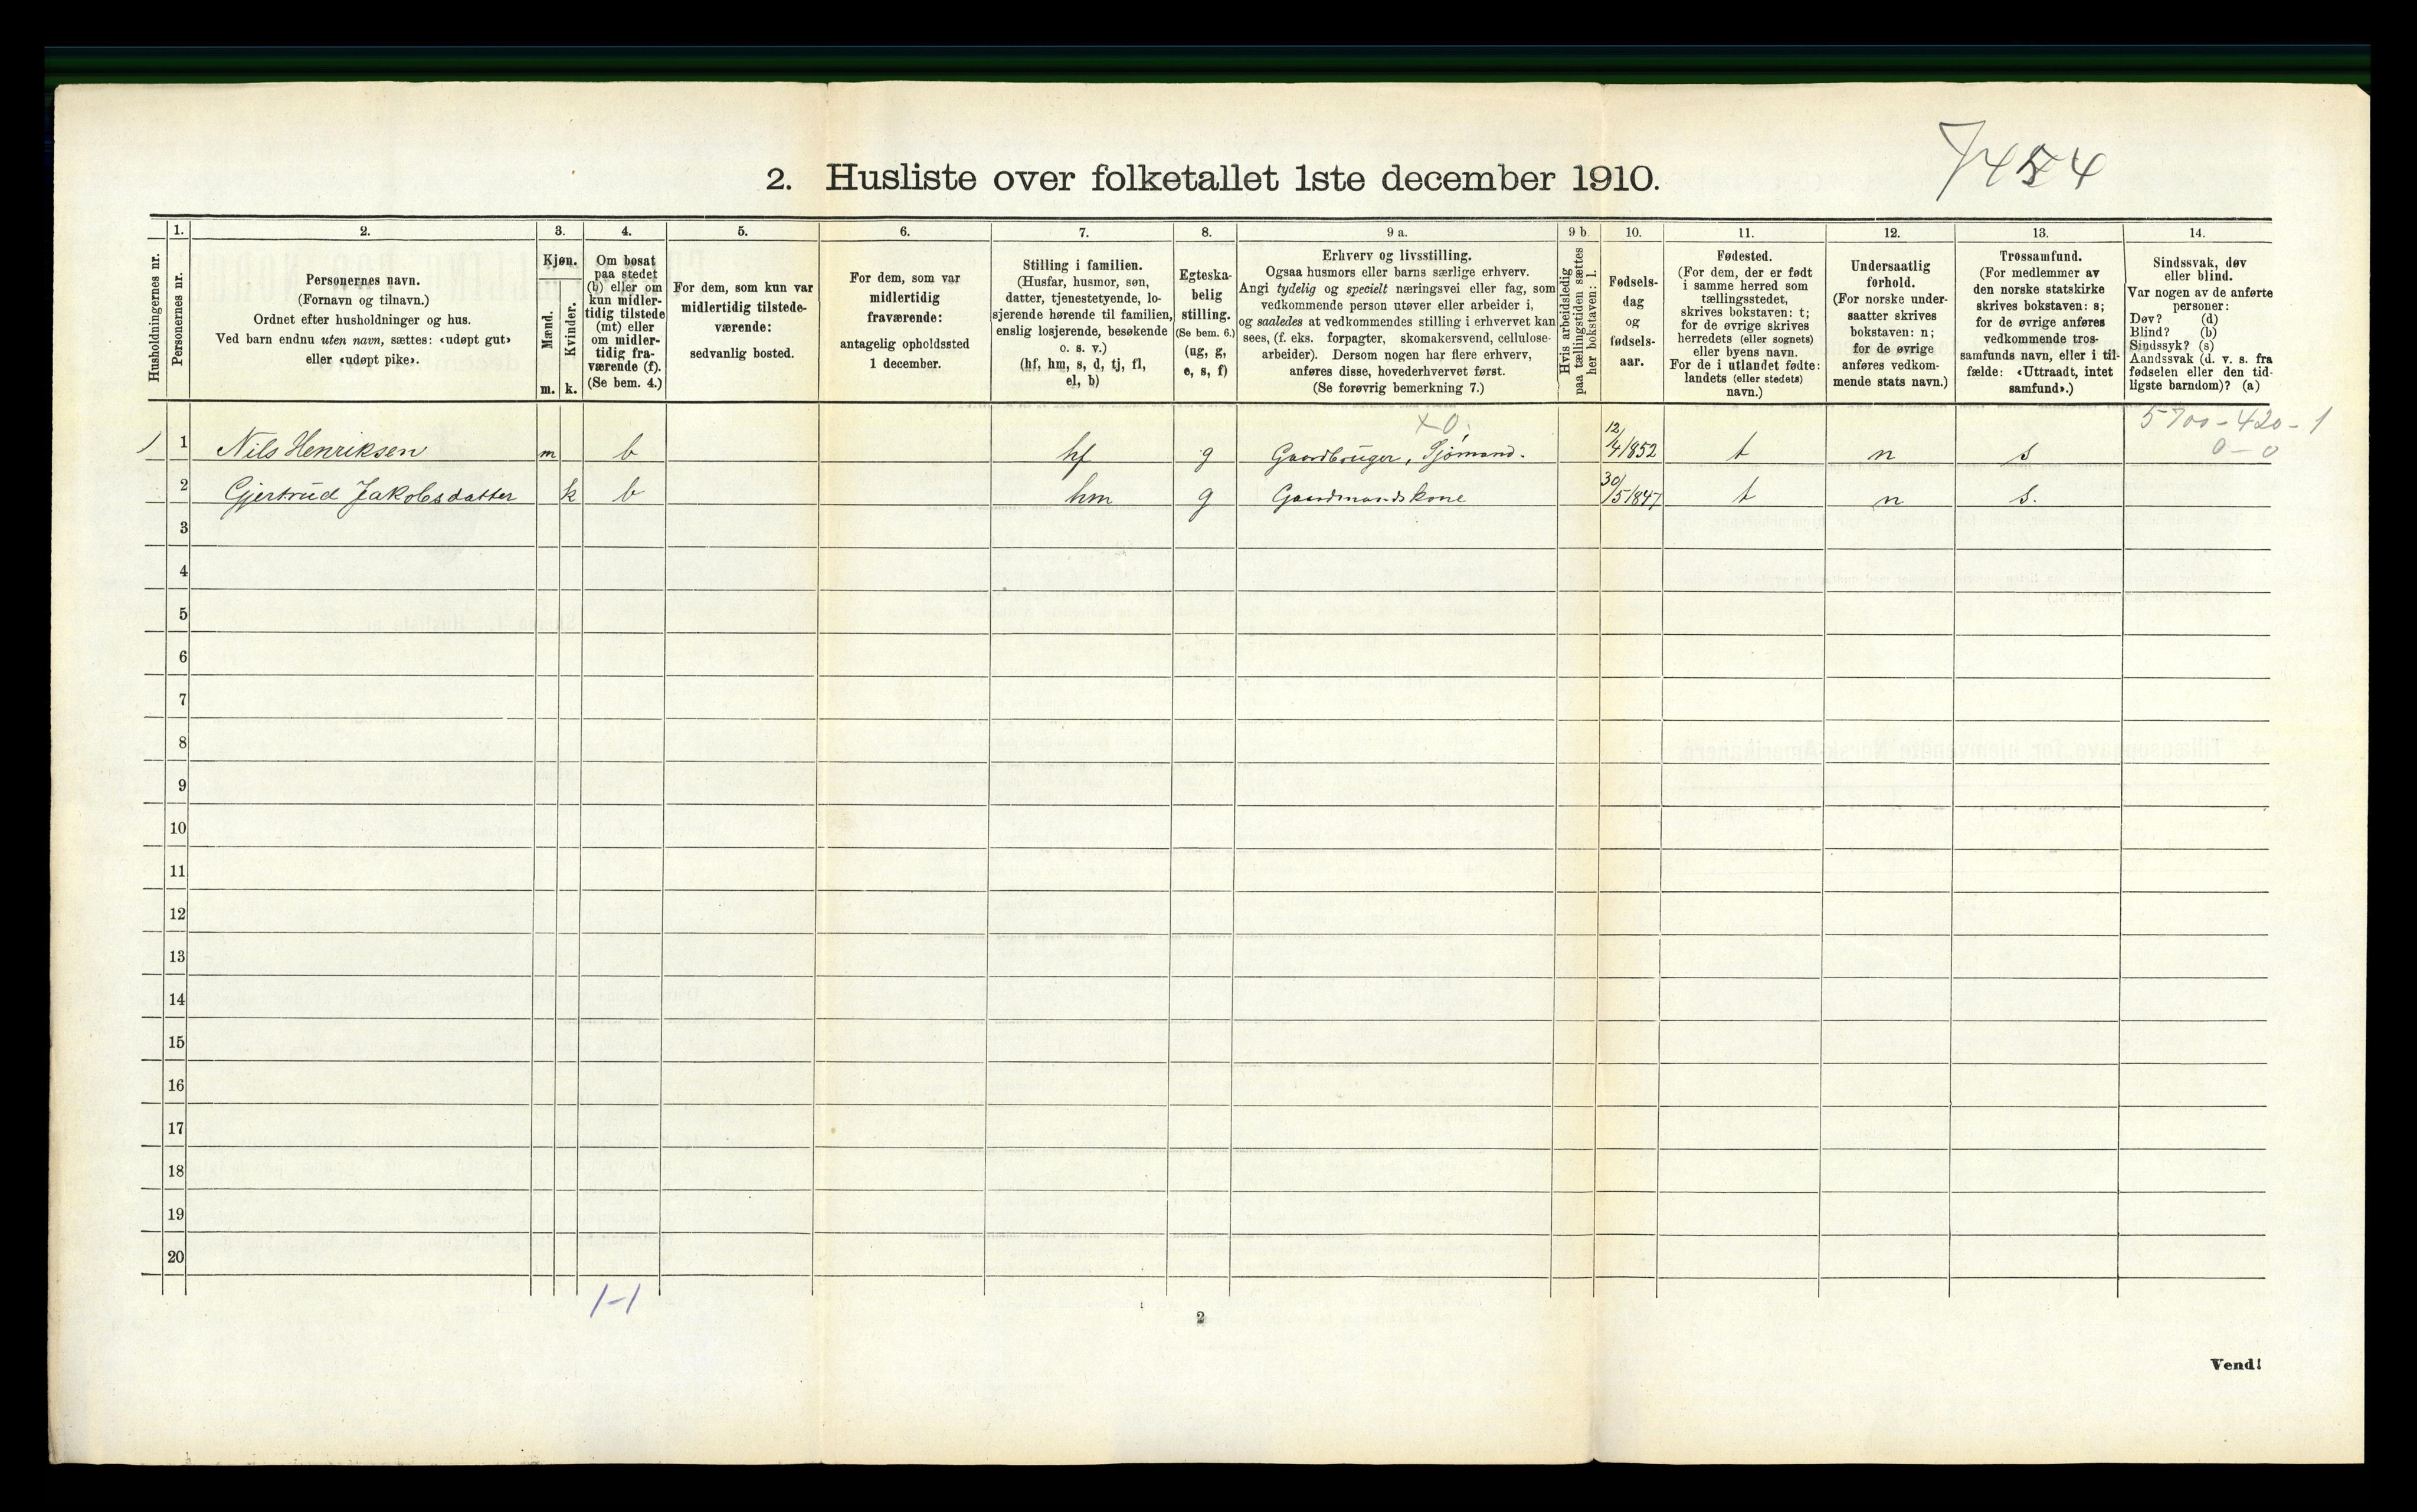 7454
2. Husliste over folketallet 1ste december 1910.
Husholdningernes nr.
1.
Personernes nr.
2.
Personernes navn.
(Fornavn og tilnavn.)
Ordnet efter husholdninger og hus.
Ved barn endnu uten navn, sættes: «udøpt gut»
eller «udøpt pike».
3.
Kjøn.
Mænd.
Kvinder.
m. k.
4.
Om bosat
paa stedet
(b) eller om
kun midler-
tidig tilstede
(mt) eller
om midler-
tidig fra-
værende (f).
(Se bem. 4.)
5.
For dem, som kun var
midlertidig tilstede-
værende:
sedvanlig bosted.
6.
For dem, som var
midlertidig
fraværende:
antagelig opholdssted
1 december.
7.
Stilling i familien.
(Husfar, husmor, søn,
datter, tjenestetyende, lo-
sjerende hørende til familien,
enslig losjerende, besøkende
o. s. v.)
(hf, hm, s, d, tj, fl,
el, b)
8.
Egteska-
belig
stilling.
(Se bem. 6.)
(ug, g,
e, s, f)
9 a.
Erhverv og livsstilling.
Ogsaa husmors eller barns særlige erhverv.
Angi tydelig og specielt næringsvei eller fag, som
vedkommende person utøver eller arbeider i,
og saaledes at vedkommendes stilling i erhvervet kan
sees, (f. eks. forpagter, skomakersvend, cellulose-
arbeider). Dersom nogen har flere erhverv,
anføres disse, hovederhvervet først.
(Se forøvrig bemerkning 7.)
9 b
Hvis arbeidsledig
paa tællingstiden sættes
her bokstaven: l.
10.
Fødsels-
dag
og
fødsels-
aar.
11.
Fødested.
(For dem, der er født
i samme herred som
tællingsstedet,
skrives bokstaven: t;
for de øvrige skrives
herredets (eller sognets)
eller byens navn.
For de i utlandet fødte:
landets (eller stedets)
navn.)
12.
Undersaatlig
forhold.
(For norske under-
saatter skrives
bokstaven: n;
for de øvrige
anføres vedkom-
mende stats navn.)
13.
Trossamfund.
(For medlemmer av
den norske statskirke
skrives bokstaven: s;
for de øvrige anføres
vedkommende tros-
samfunds navn, eller i til-
fælde: «Uttraadt, intet
samfund».)
14.
Sindssvak, døv
eller blind.
Var nogen av de anførte
personer:
Døv? (d)
Blind? (b)
Sindssyk? (s)
Aandssvak (d. v. s. fra
fødselen eller den tid-
ligste barndom)? (a)
x 0. 5700-420-1
1 1 Nils Henriksen m b hf g Gaardbruger, Sjømand. 12/4 1852 t n s 0-0
2 Gjertrud Jakobsdatter k b hm g Gaardmandskone 30/5 1847 t n s.
3
4
5
6
7
8
9
10
11
12
13
14
15
16
17
18
19
20
1-1
2
Vend!